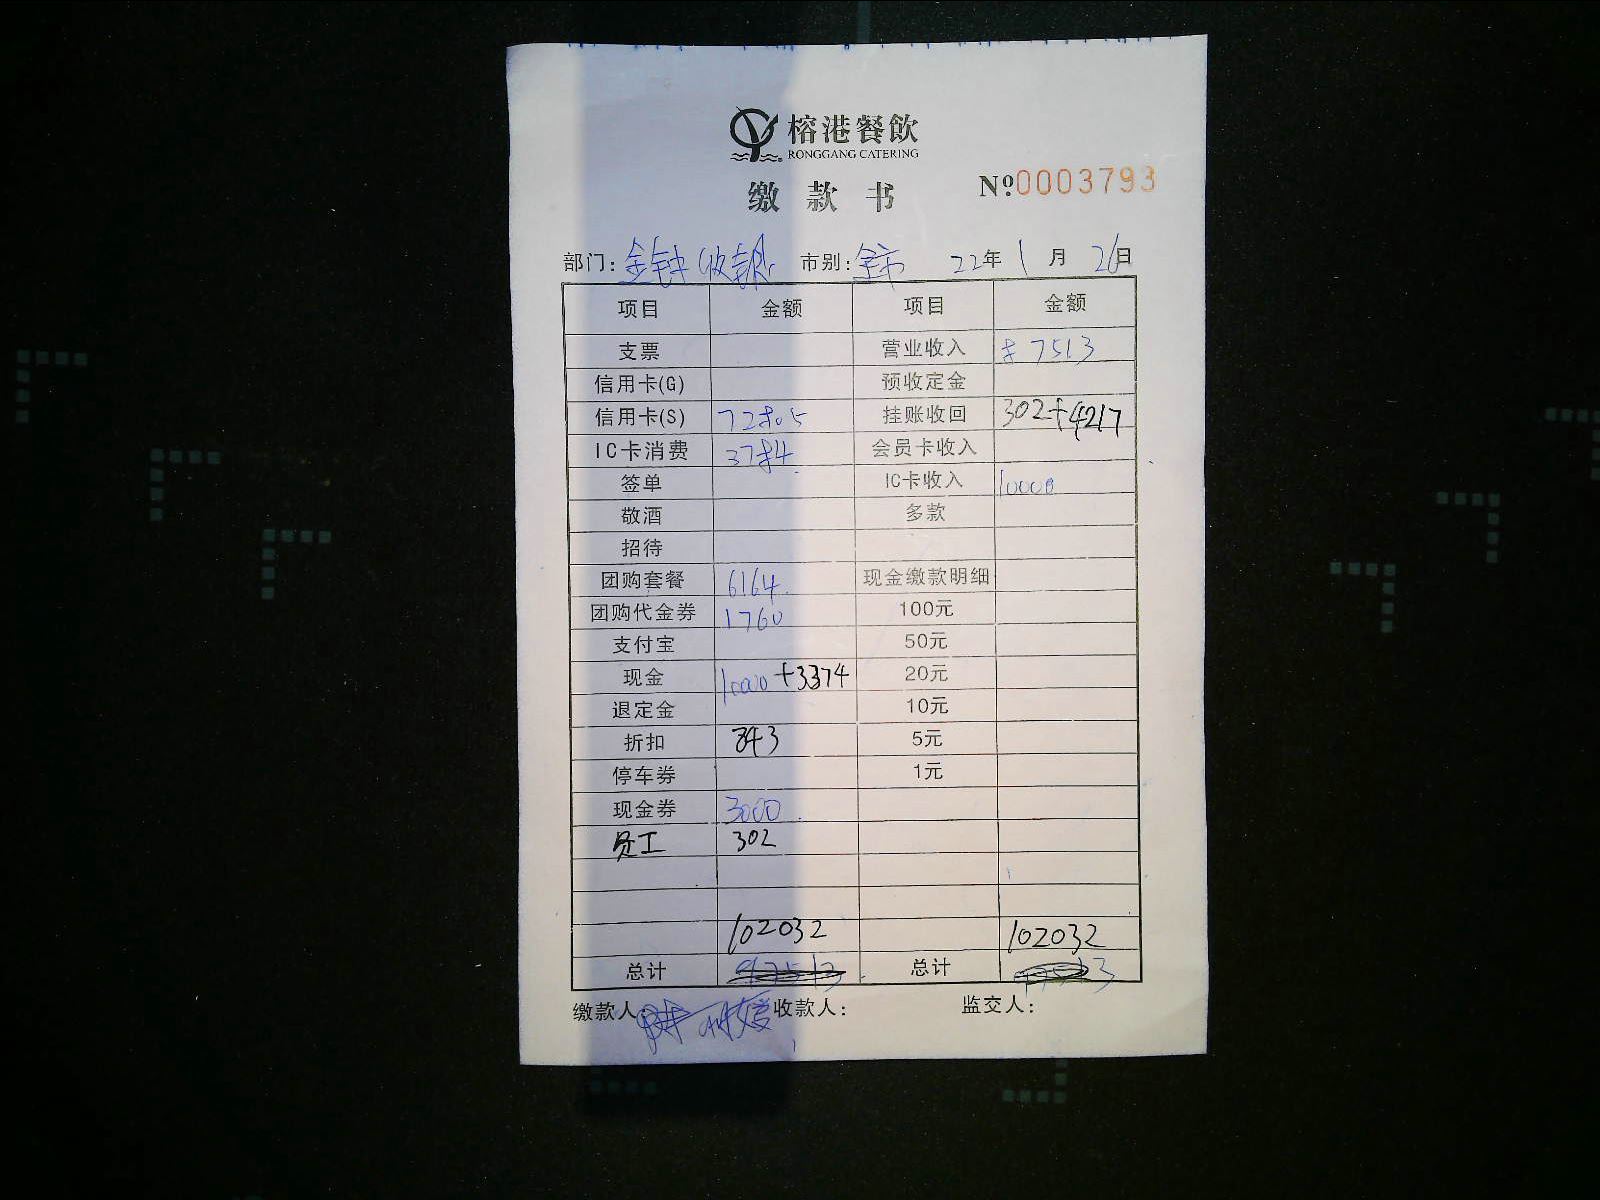 榕港餐飲
RONGGANG CATERING
缴款书 №0003793
部门:金钟收银 市别:全市 22年1月26日
项目 金额 项目 金额
支票 营业收入 87513
信用卡(G) 预收定金
信用卡(S) 72805 挂账收回 302+4217
IC卡消费 3784 会员卡收入
签单 IC卡收入 10000
敬酒 多款
招待
团购套餐 6164 现金缴款明细
团购代金券 1760 100元
支付宝 50元
现金 10000+3374 20元
退定金 10元
折扣 843 5元
停车券 1元
现金券 3000
员工 302
102032 102032
总计 97513 总计 97513
缴款人: 收款人: 监交人: